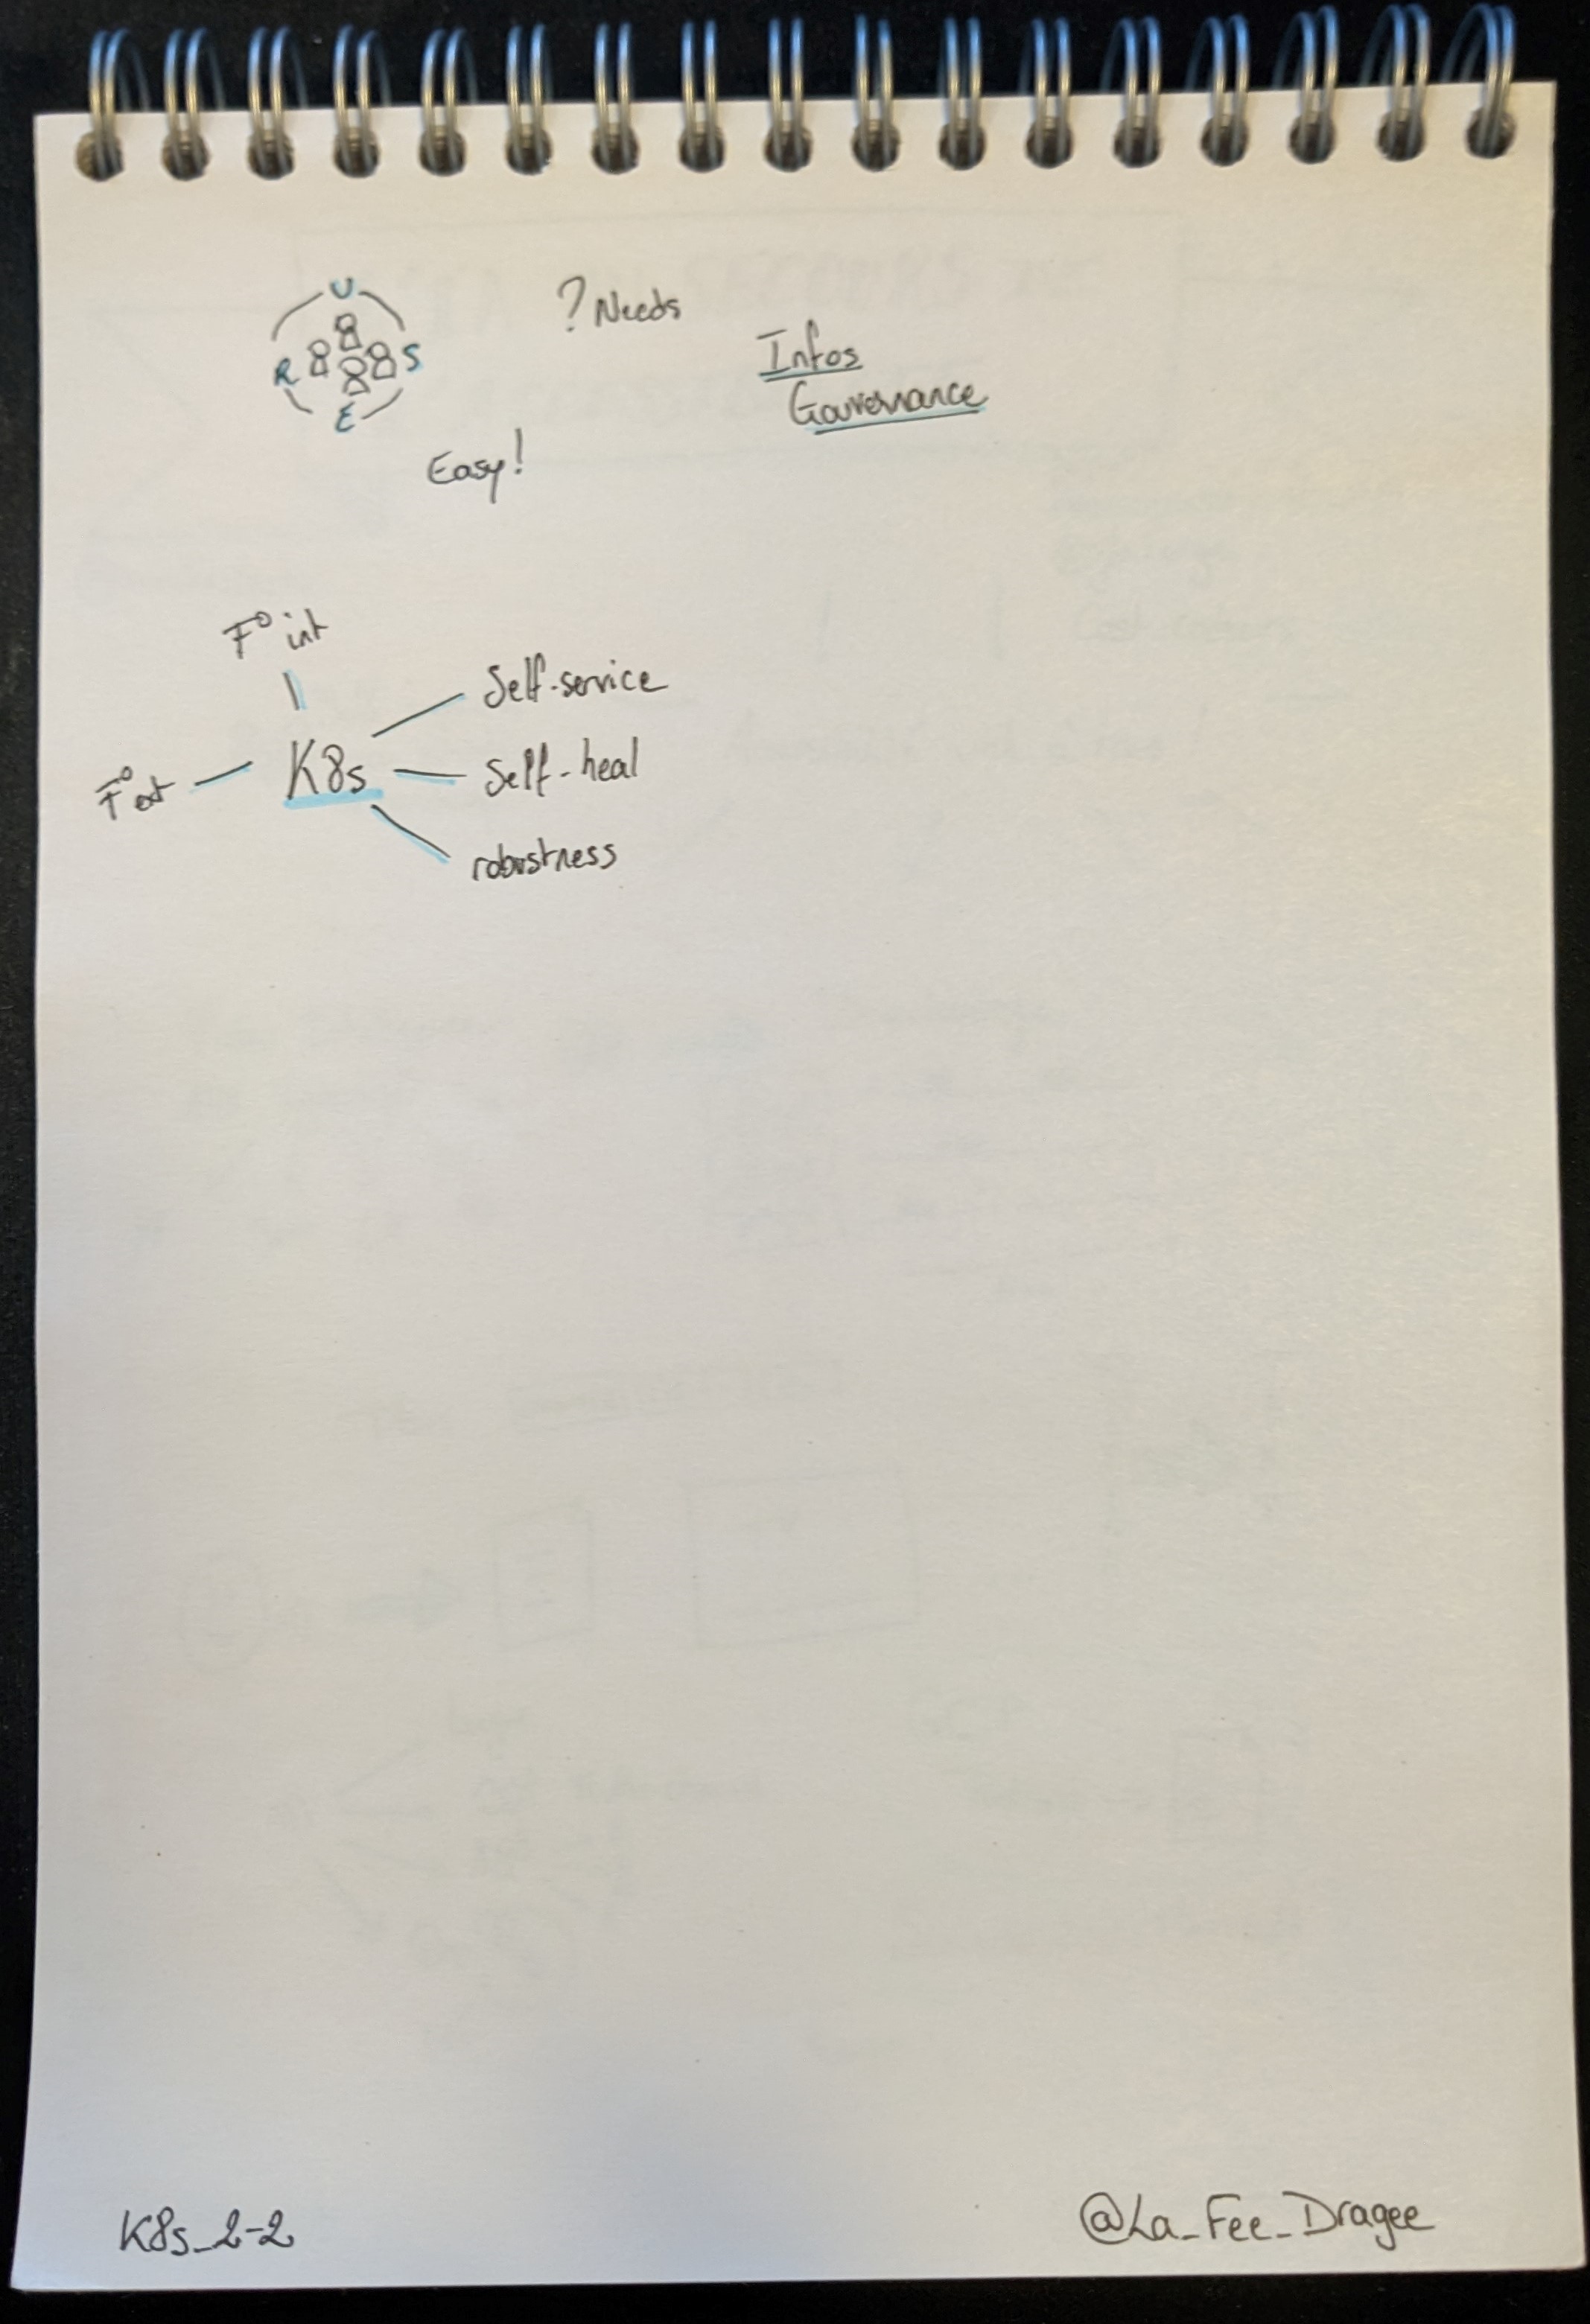 U
R S
E
? Needs
Infos
Gouvernance
Easy!
F° int
Self-service
F° ext
K8s
Self-heal
robustness
K8s_2-2
@La_Fee_Dragee